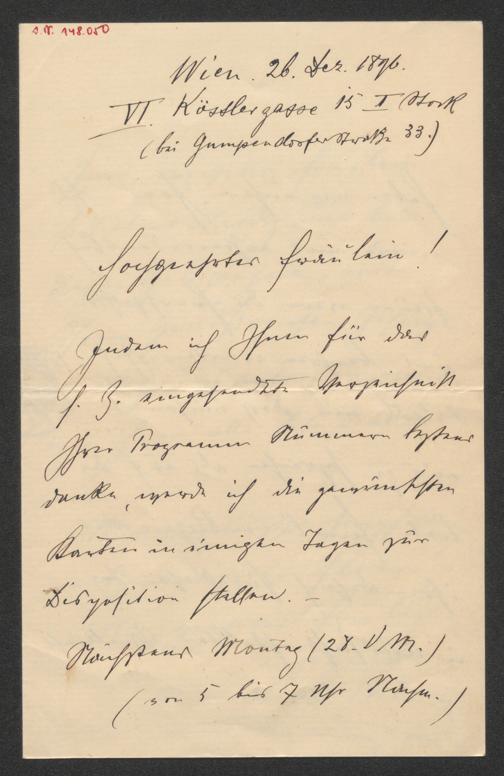 J.N. 148.050
Wien. 26. Dez. 1896.
VI. Kösslergasse 15 I Stock
(bei Gumpendorferstraße 33.)
Hochgeehrtes Fräulein!
Indem ich Ihnen für das
s. Z. eingesendete Verzeichniß
Ihrer Programm Nummern bestens
danke, werde ich die gewünschten
Karten in einigen Tagen zur
Disposition stellen. –
Nächstens Montag (28. d M.)
(von 5 bis 7 Uhr Nachm.)